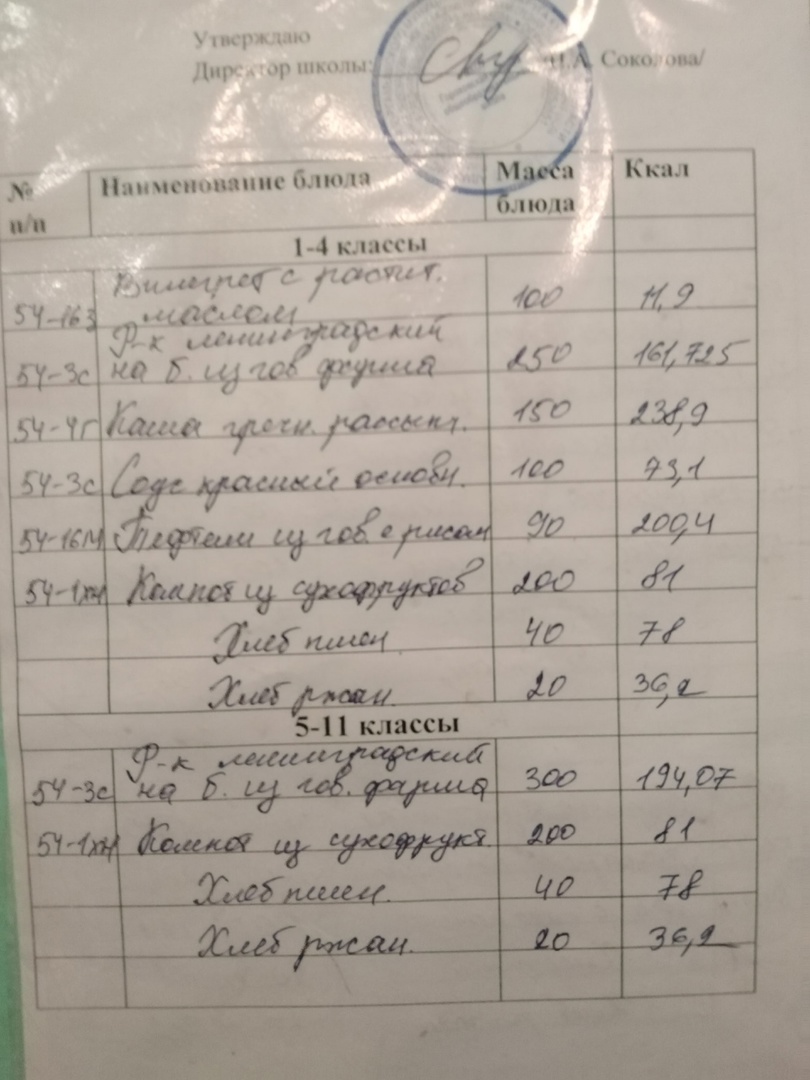 Утверждаю
Директор школы: Н.А. Соколова/
№ п/п Наименование блюда Масса блюда Ккал
1-4 классы
Винегрет с растит.
54-16з маслом 100 11,9
Р-к ленинградский
54-3с на б. из гов. фарша 250 161,725
54-4г Каша гречн. рассыпч. 150 238,9
54-3с Соус красный основн. 100 73,1
54-16м Тефтели из гов. с рисом 90 200,4
54-1хн Компот из сухофруктов 200 81
Хлеб пшен 40 78
Хлеб ржан. 20 36,2
5-11 классы
Р-к ленинградский
54-3с на б. из гов. фарша 300 194,07
54-1хн Компот из сухофрукт. 200 81
Хлеб пшен. 40 78
Хлеб ржан. 20 36,2